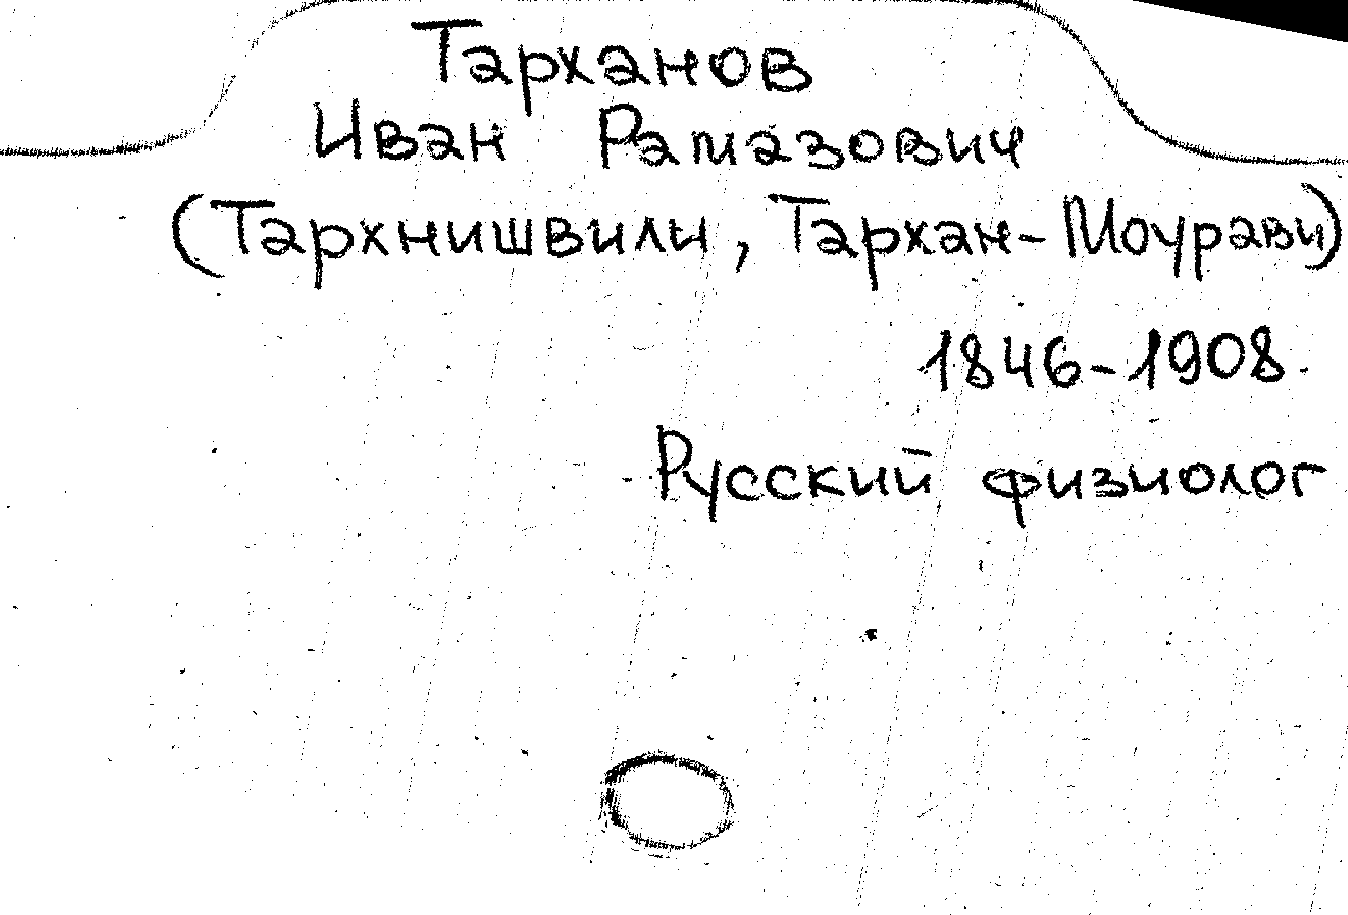 Тарханов
Иван Рамазович
(Тархнишвили, Тархан-Моурави)
1846-1908.
Русский физиолог